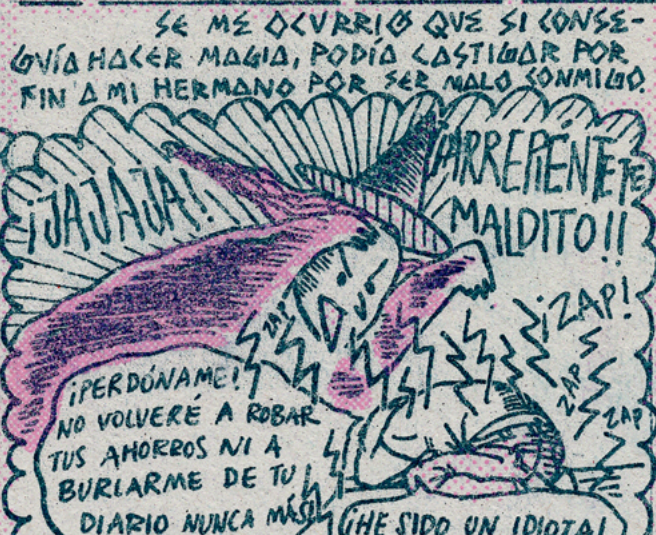 SE ME OCURRIÓ QUE SI CONSE-
GUÍA HACER MAGIA, PODÍA CASTIGAR POR
FIN A MI HERMANO POR SER MALO CONMIGO.
¡JAJAJA!
¡ARREPIÉNTETE
MALDITO!!
¡ZAP!
ZAP
ZAP
ZAP
¡PERDÓNAME!
NO VOLVERÉ A ROBAR
TUS AHORROS NI A
BURLARME DE TU
DIARIO NUNCA MÁS!
¡HE SIDO UN IDIOTA!